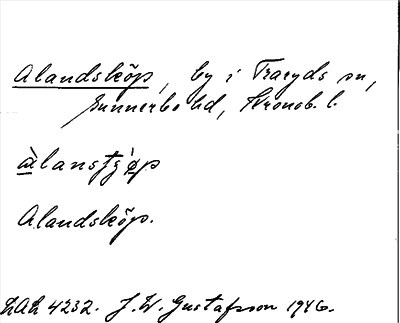 Alandsköp, by i Traryds sn,
Sunnerbo hd, Kronob. l.
Alandsköp.
LAL 4232. J. W. Gustafsson 1946.